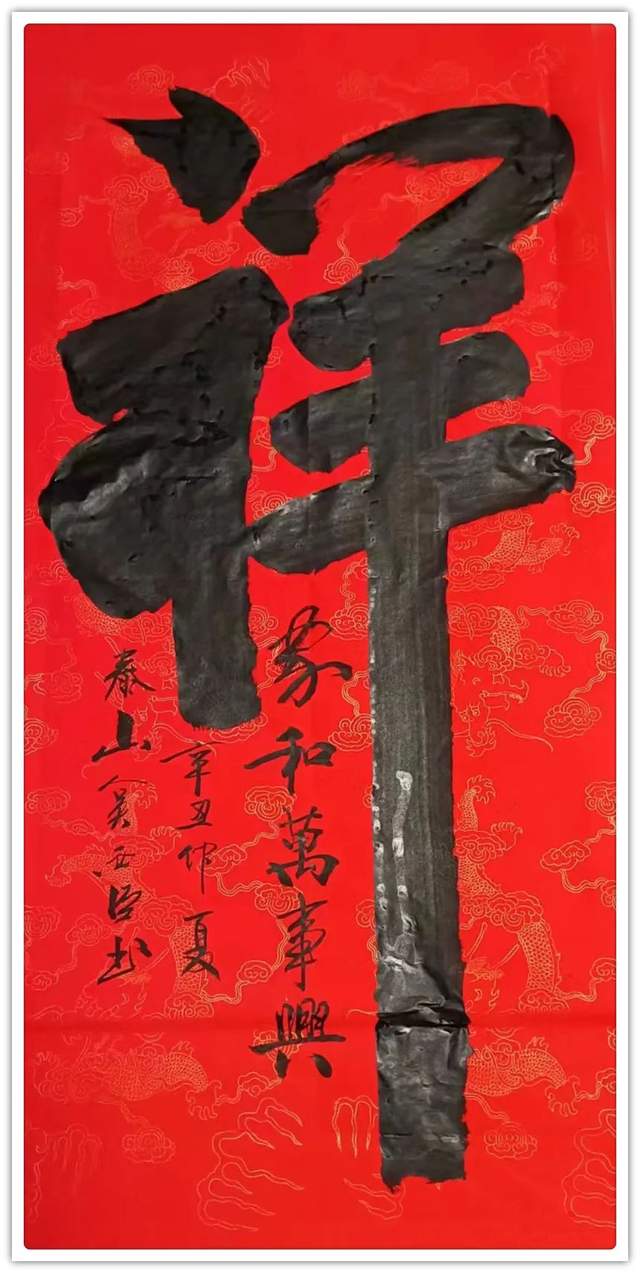 祥
家和萬事興
辛丑仲夏
泰山人吴西臣书